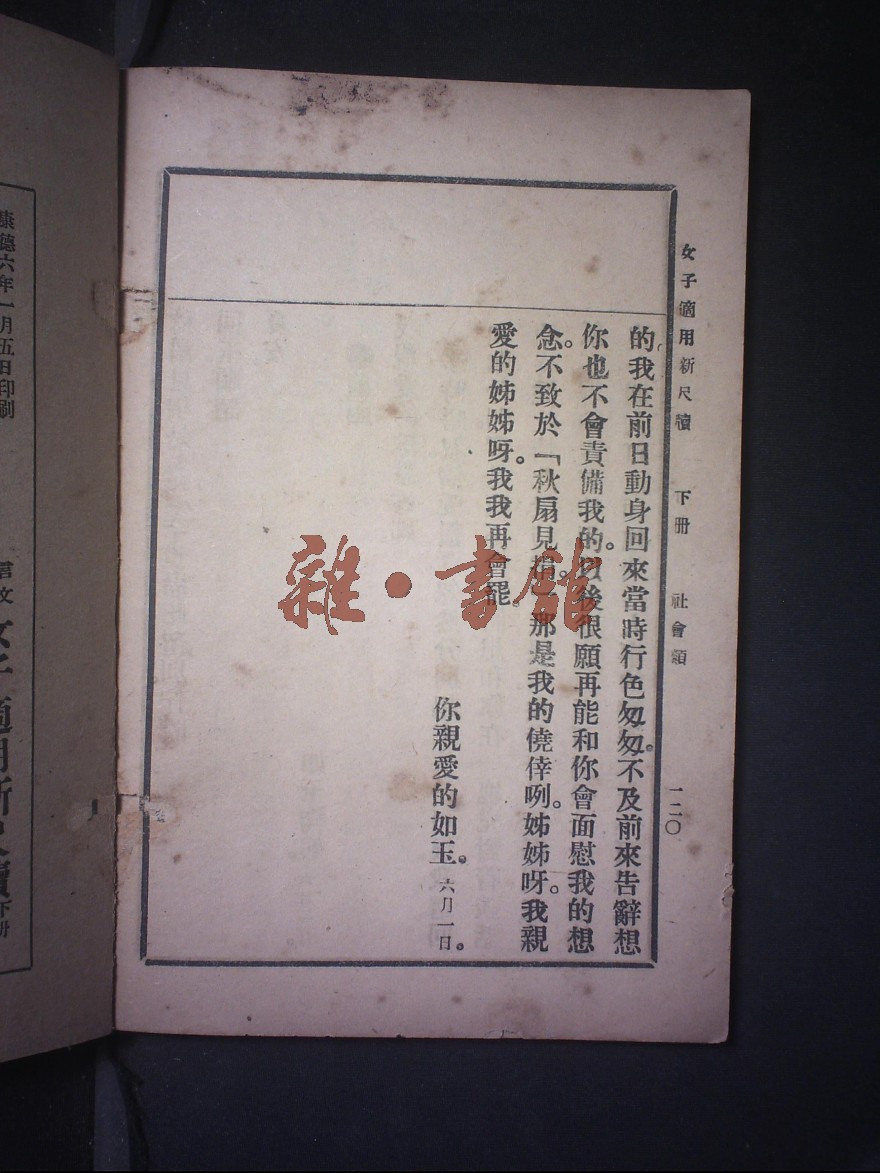 女子適用新尺牘　下册　社會類　一二〇
的我在前日動身回來當時行色匆匆。不及前來告辭想
你也不會責備我的。以後很願再能和你會面慰我的想
念。不致於「秋扇見捐。」那是我的僥倖咧。姊姊呀。我親
愛的姊姊呀。我我再會罷。
你親愛的如玉。六月一日。
雜·書館
康德六年一月五日印刷
言文
女子適用新尺牘下册